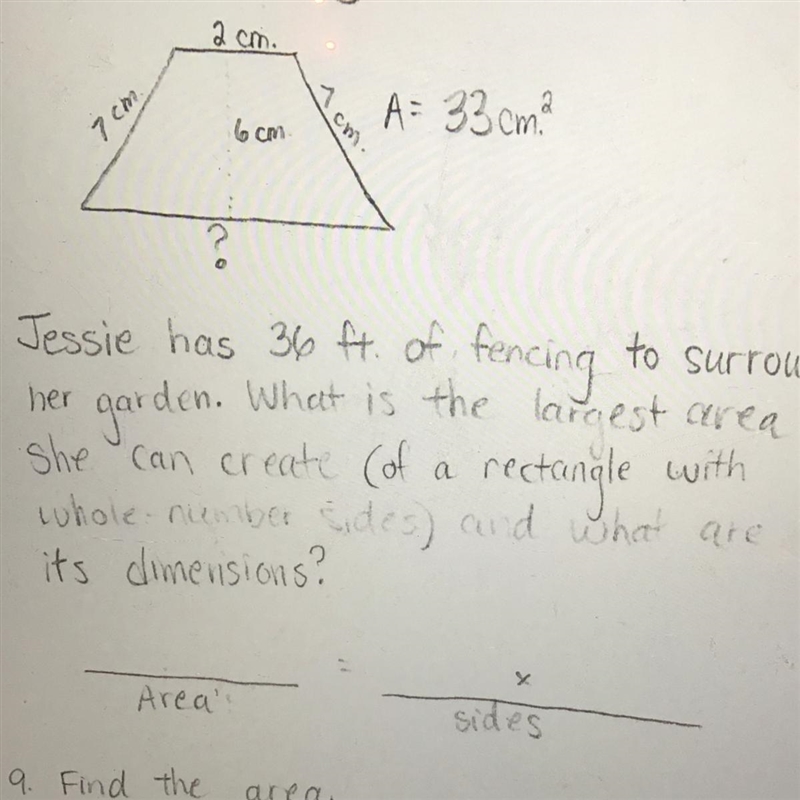 2 cm.
7 cm.
7 cm.
6 cm
A= 33 cm.²
?
Jessie has 36 ft. of fencing to surrou
her garden. What is the largest area
she can create (of a rectangle with
whole-number sides) and what are
its dimensions?
= x
Area sides
9. Find the area.